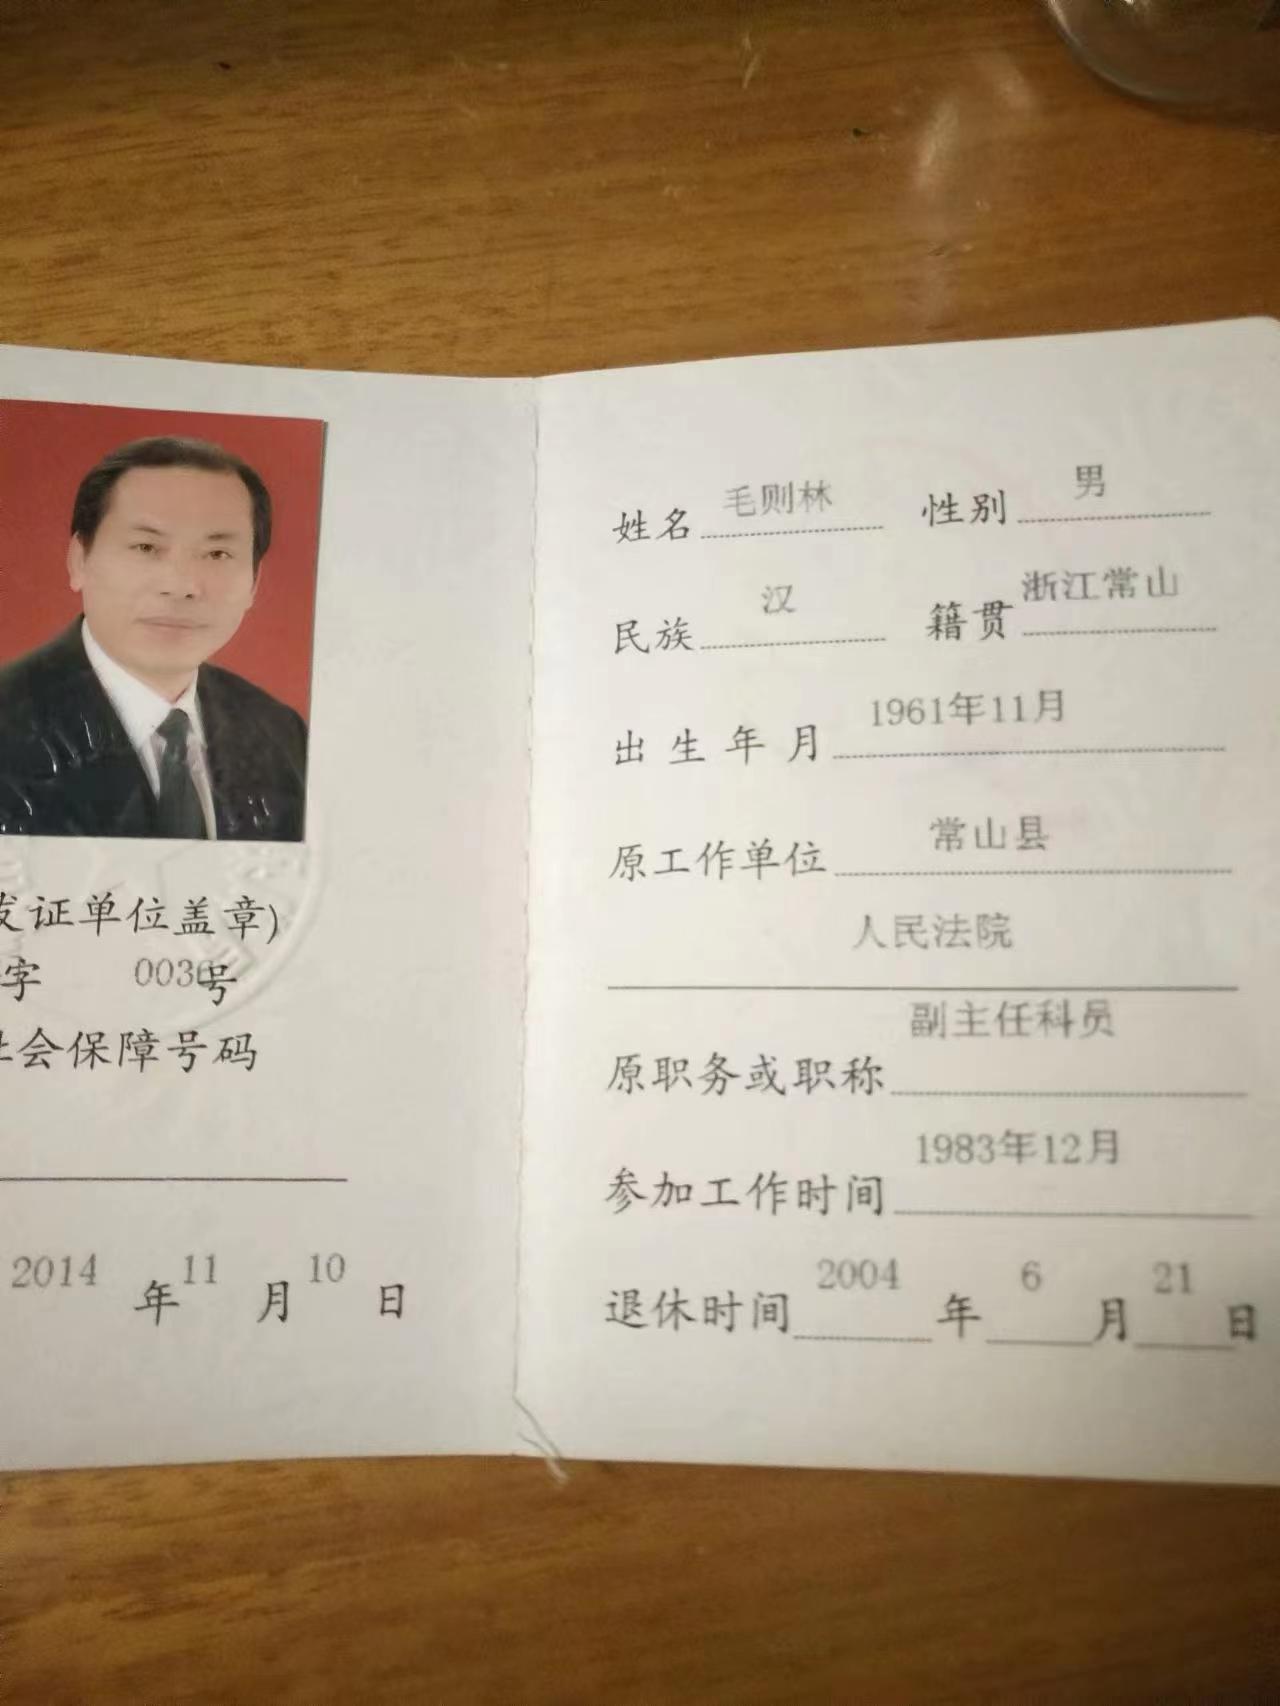 发证单位盖章)
字 0036号
社会保障号码
2014 年 11 月 10 日
姓名 毛则林 性别 男
民族 汉 籍贯 浙江常山
出生年月 1961年11月
原工作单位 常山县
人民法院
原职务或职称 副主任科员
参加工作时间 1983年12月
退休时间 2004 年 6 月 21 日